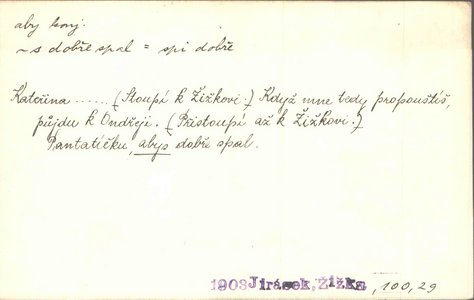 aby konj.
~ s dobře spal = spi dobře
Kateřina ...... (Stoupí k Žižkovi.) Když mne tedy propouštíš,
půjdu k Ondřeji. (Přistoupí až k Žižkovi.)
Pantatíčku, abys dobře spal.
1903 Jirásek, Žižka, 100,29